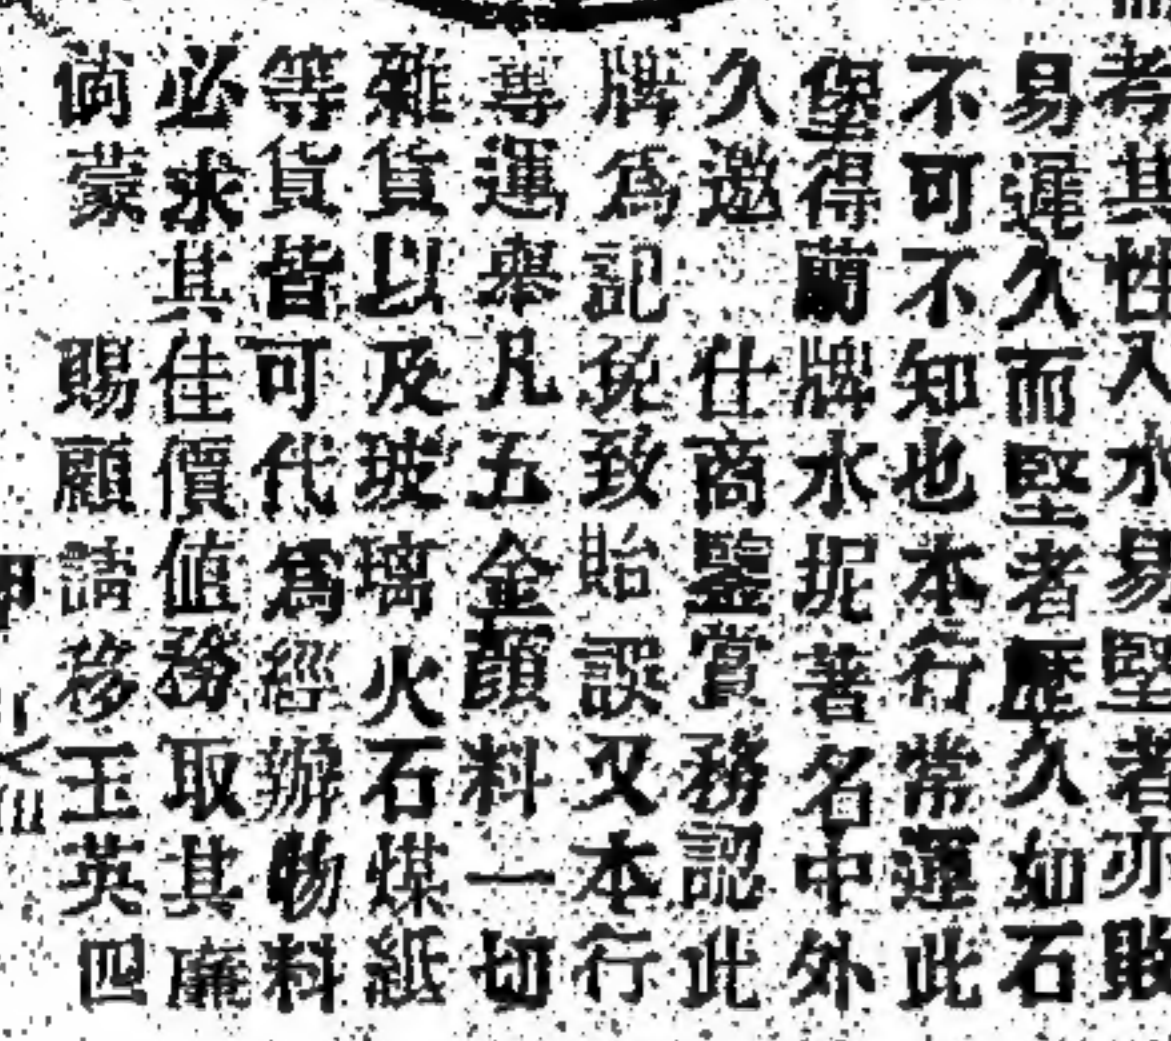 考其性入水易堅者亦敗
易遲久而堅者歷久如石
不可不知也本行常運此
堡得蘭牌水坭著名中外
久邀仕商鑒賞務認此
牌為記免致貽誤又本行
專運舉凡五金顏料一切
雜貨以及玻璃火石煤紙
等貨皆可代為經辦物料
必求其佳價值務取其廉
倘蒙賜顧請移玉英四